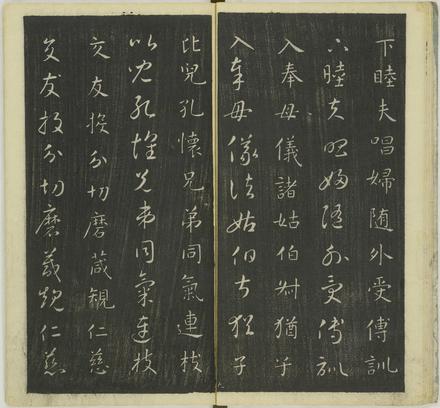 下睦夫唱婦随外受傅訓
下睦夫唱婦随外受傅訓
入奉母儀諸姑伯叔猶子
入奉母儀諸姑伯叔猶子
比兒孔懷兄弟同氣連枝
比兒孔懷兄弟同氣連枝
交友投分切磨葴規仁慈
交友投分切磨箴規仁慈